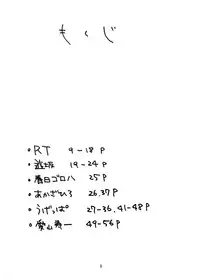 もくじ
・RT 9-18P
・遊坂 19-24P
・春日ゴロハ 25P
・あかざひろ 26.37P
・うげっぱ 27-36.41-48P
・柴山寿一 49-56P